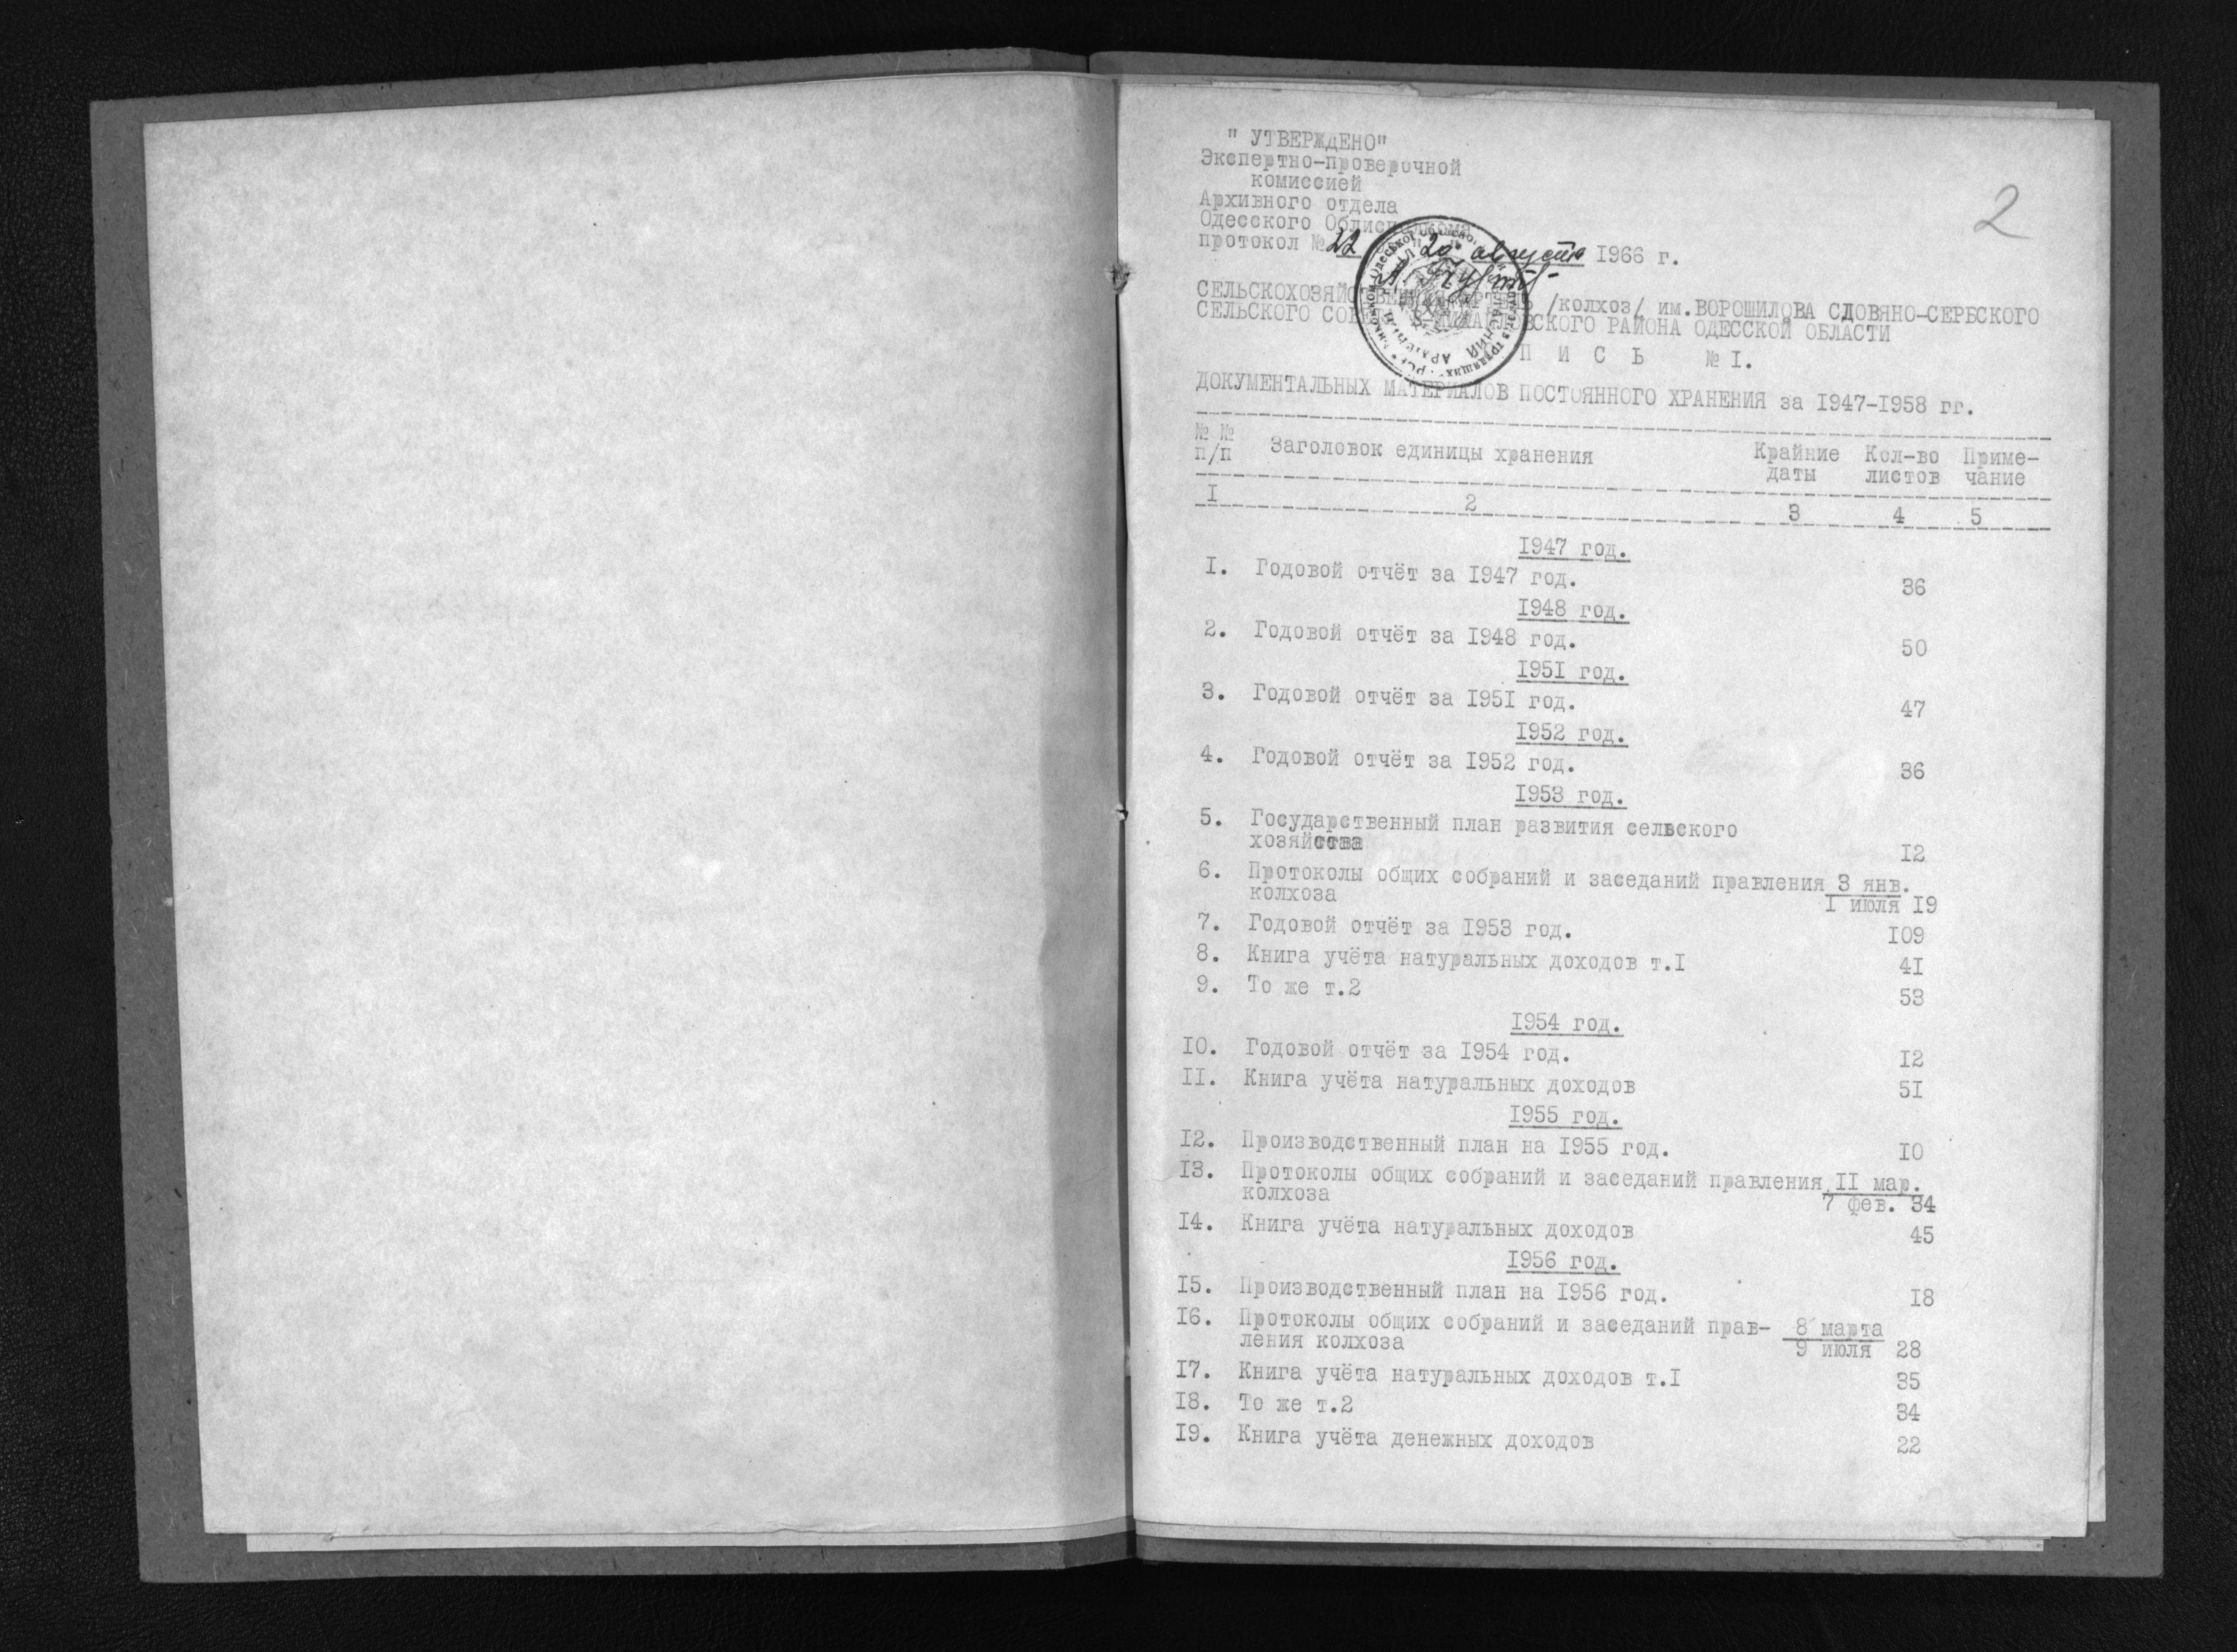 " УТВЕРЖДЕНО"
Экспертно-проверочной
комиссией
Архивного отдела
Одесского
протокол № 22 20 августа 1966 г.
2
/колхоз/ им.ВОРОШИЛОВА СЛОВЯНО-СЕРБСКОГО
СЕЛЬСКОГО РАЙОНА ОДЕССКОЙ ОБЛАСТИ
П И С Ь № I.
ДОКУМЕНТАЛЬНЫХ МАТЕРИАЛОВ ПОСТОЯННОГО ХРАНЕНИЯ за 1947-1958 гг.
№ № п/п Заголовок единицы хранения Крайние даты Кол-во листов Приме-чание
I 2 3 4 5
1947 год.
I. Годовой отчёт за 1947 год. 36
1948 год.
2. Годовой отчёт за 1948 год. 50
1951 год.
3. Годовой отчёт за 1951 год. 47
1952 год.
4. Годовой отчёт за 1952 год. 36
1953 год.
5. Государственный план развития сельского
хозяйства 12
6. Протоколы общих собраний и заседаний правления 3 янв.
колхоза I июля 19
7. Годовой отчёт за 1953 год. 109
8. Книга учёта натуральных доходов т.I 41
9. То же т.2 53
1954 год.
10. Годовой отчёт за 1954 год. 12
11. Книга учёта натуральных доходов 51
1955 год.
12. Производственный план на 1955 год. 10
13. Протоколы общих собраний и заседаний правления II мар.
колхоза 7 фев. 34
14. Книга учёта натуральных доходов 45
1956 год.
15. Производственный план на 1956 год. 18
16. Протоколы общих собраний и заседаний прав- 8 марта
ления колхоза 9 июля 28
17. Книга учёта натуральных доходов т.I 35
18. То же т.2 34
19. Книга учёта денежных доходов 22